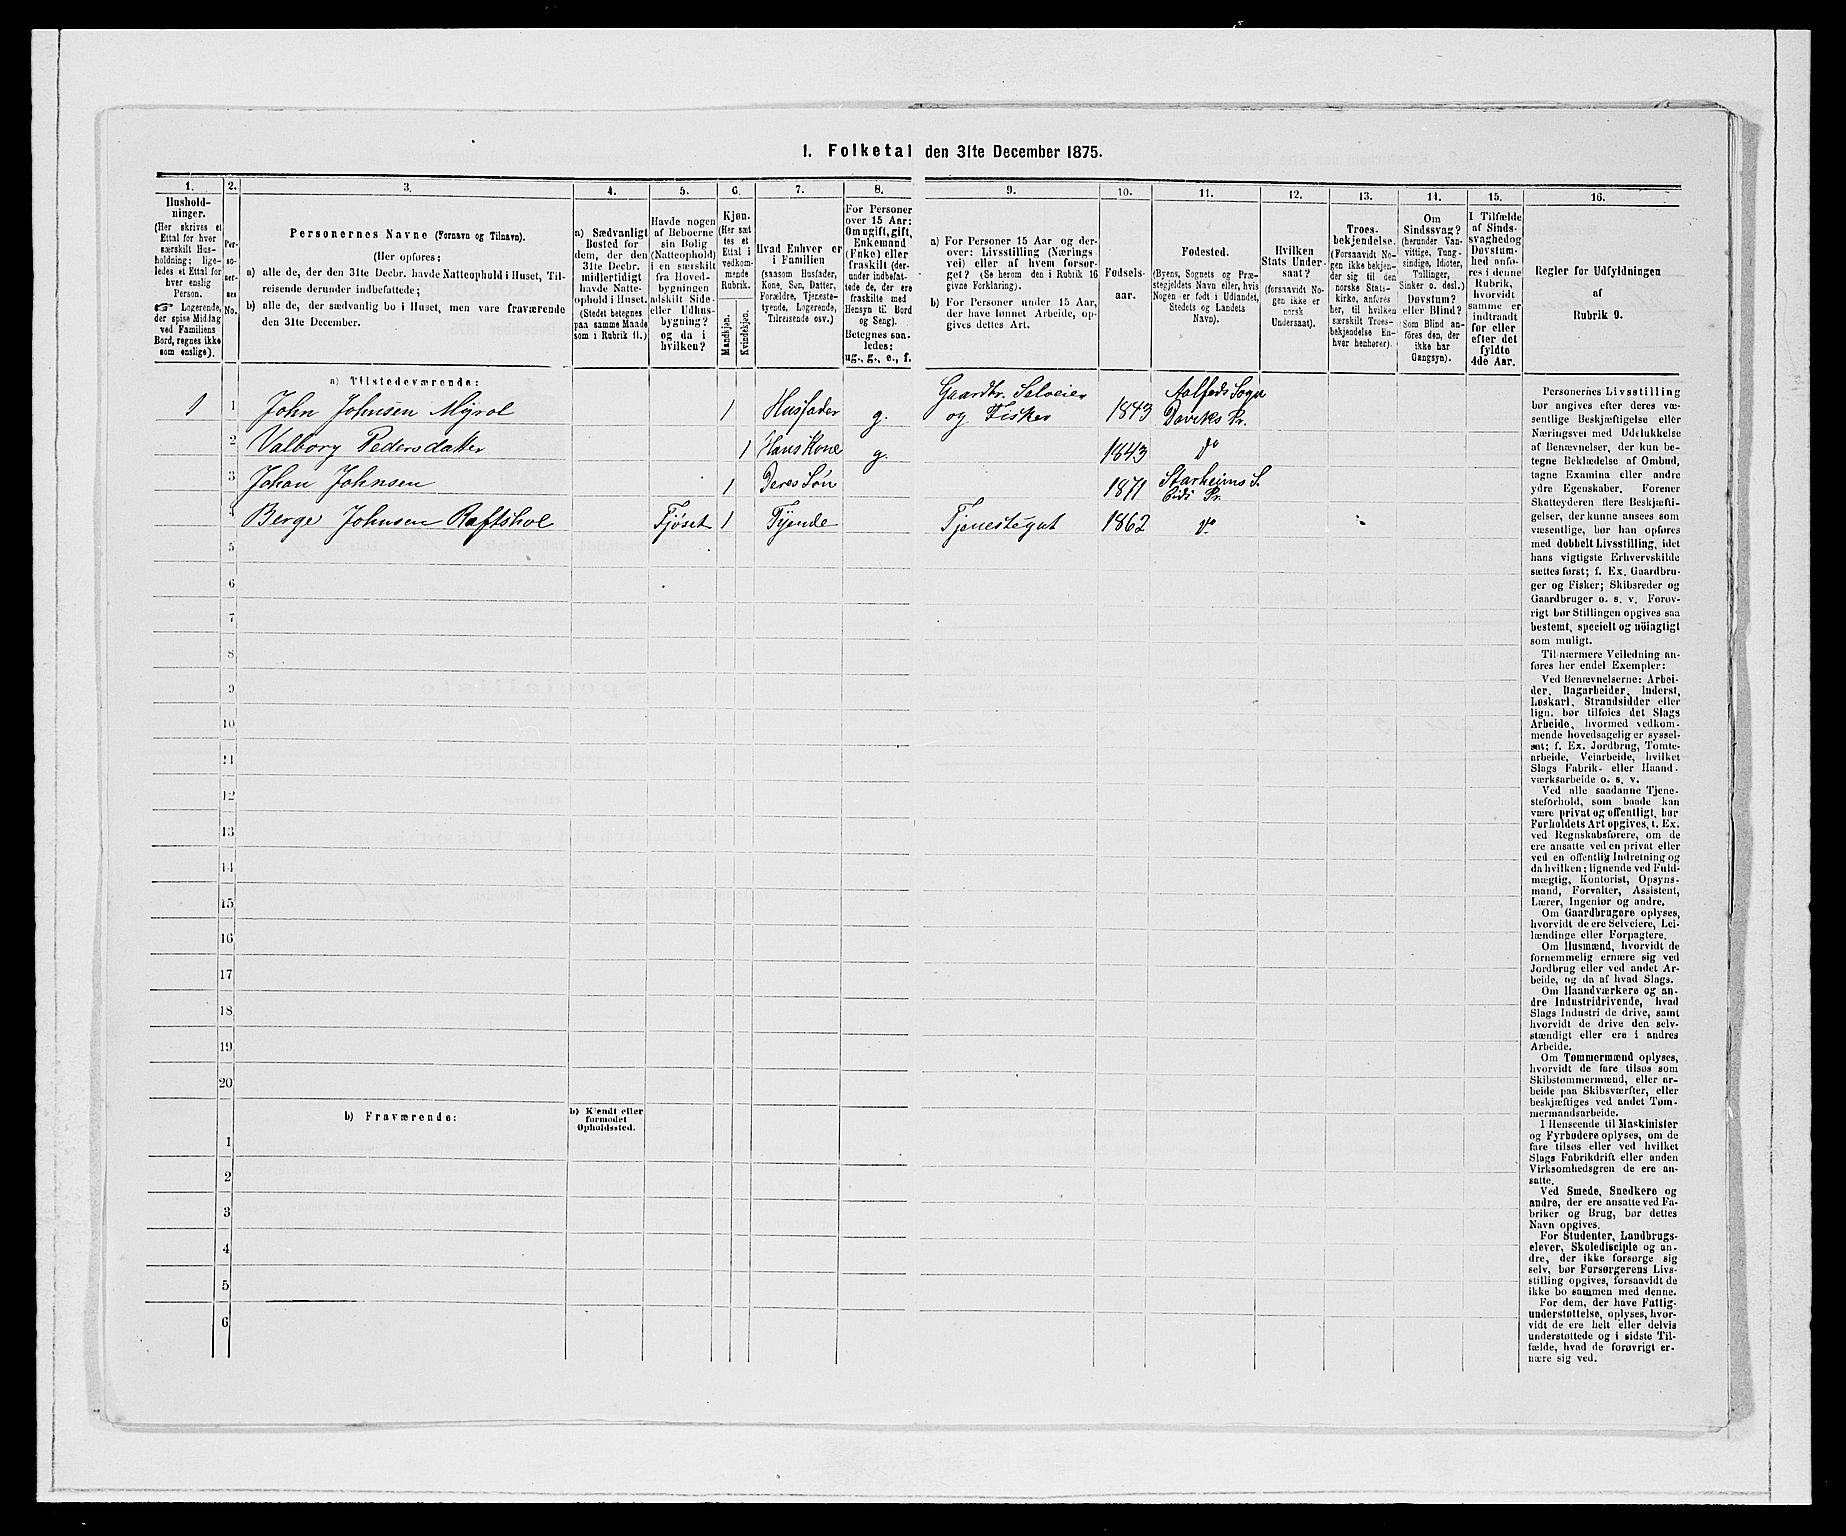 I. Folketal den 31te December 1875.
1. 2. 3. 4. 5. 6. 7. 8. 9. 10. 11. 12. 13. 14. 15. 16.
Hushold-
ninger.
(Her skrives et
Ettal for hver
særskilt Hus-
holdning; lige-
ledes et Ettal for
hver enslig
Person.
Logerende,
der spise Middag
ved Familiens
Bord, regnes ikke
som enslige).
Per-
so-
ner-
nes
No.
Personernes Navne (Fornavn og Tilnavn).
(Her opføres:
a) alle de, der den 31te Decbr. havde Natteophold i Huset, Til-
reisende derunder indbefattede;
b) alle de, der sædvanlig bo i Huset, men vare fraværende
den 31te December.
a) Sædvanligt
Bosted for
dem, der den
31te Decbr.
midlertidigt
havde Natte-
ophold i Huset.
(Stedet betegnes
paa samme Maade
som i Rubrik 11.)
Havde nogen
af Beboerne
sin Bolig
(Natteophold)
i en særskilt
fra Hoved-
bygningen
adskilt Side-
eller Udhus-
bygning?
og da i
hvilken?
Kjøn.
(Her sæt
tes et
Ettal i
vedkom-
mende
Rubrik.
Mandkjøn.
Kvindekjøn.
Hvad Enhver er
i Familien
(saasom Husfader,
Kone, Søn, Datter,
Forældre, Tjeneste-
tyende, Logerende,
Tilreisende osv.)
For Personer
over 15 Aar:
Om ugift, gift,
Enkemand
(Enke) eller
fraskilt (der-
under indbefat-
tede de, der ere
fraskilte med
Hensyn til Bord
og Seng).
Betegnes saa-
ledes:
ug., g., e., f.
a) For Personer 15 Aar og der-
over: Livsstilling (Nærings-
vei) eller af hvem forsør-
get? (Se herom den i Rubrik 16
givne Forklaring).
b) For Personer under 15 Aar,
der have lønnet Arbeide, op-
gives dettes Art.
Fødsels-
aar.
Fødested.
(Byens, Sognets og Præ-
stegjeldets Navn eller, hvis
Nogen er født i Udlandet,
Stedets og Landets
Navn).
Hvilken
Stats Under-
saat?
(forsaavidt No-
gen ikke er
norsk
Undersaat).
Troes-
bekjendelse.
(Forsaavidt No-
gen ikke bekjen-
der sig til den
norske Stats-
kirke, anføres
her, til hvilken
særskilt Troes-
bekjendelse En-
hver henhører).
Om
Sindssvag?
(herunder Van-
vittige, Tung-
sindige, Idioter,
Tullinger,
Sinker o. desl.)
Døvstum?
eller Blind?
Som Blind an-
føres den, der
ikke har
Gangsyn).
I Tilfælde
af Sinds-
svaghed og
Døvstum-
hed anfø-
res i denne
Rubrik,
hvorvidt
samme er
indtraadt
før eller
efter det
fyldte
4de Aar.
Regler for Udfyldningen
af
Rubrik 9.
a) Tilstedeværende:
1 1 John Johnsen Myrol 1 Husfader g. Gaardbr. Selveier og Fisker 1843 Aalfods Sogn Daviks Pr.
2 Valborg Pedersdatter 1 Hans Kone g. 1843 do
3 Johan Johnsen 1 Deres Søn 1871 Starheims S. Eids Pr.
4 Berge Johnsen Raftshol Fjøset 1 Tyende Tjenestegut 1862 do
5
6
7
8
9
10
11
12
13
14
15
16
17
18
19
20
b) Fraværende:
b) Kjendt eller
formodet
Opholdssted.
1
2
3
4
5
6
Personernes Livsstilling
bør angives efter deres væ-
sentlige Beskjæftigelse eller
Næringsvei med Udelukkelse
af Benævnelser, der kun be-
tegne Beklædelse af Ombud,
tagne Examina eller andre
ydre Egenskaber. Forener
Skatteyderen flere Beskjæfti-
gelser, der kunne ansees som
væsentlige, bør han opføres
med dobbelt Livsstilling, idet
hans vigtigste Erhvervskilde
sættes først; f. Ex. Gaardbru-
ger og Fisker; Skibsreder og
Gaardbruger o. s. v. Forøv-
rigt bør Stillingen opgives saa
bestemt, specielt og nöiagtigt
som muligt.
Til nærmere Veiledning an-
føres her endel Exempler:
Ved Benævnelserne: Arbei-
der, Dagarbeider, Inderst,
Løskarl, Strandsidder eller
lign. bør tilføies det Slags
Arbeide, hvormed vedkom-
mende hovedsagelig er syssel-
sat; f. Ex. Jordbrug, Tomte-
arbeide, Veiarbeide, hvilket
Slags Fabrik- eller Haand-
værksarbeide o. s. v.
Ved alle saadanne Tjene-
steforhold, som baade kan
være privat og offentligt, bør
Forholdets Art opgives, t. Ex.
ved Regnskabsførere, om de
ere ansatte ved en privat eller
ved en offentlig Indretning og
da hvilken; lignende ved Fuld-
mægtig, Kontorist, Opsyns-
mand, Forvalter, Assistent,
Lærer, Ingeniør og andre.
Om Gaardbrugere oplyses,
hvorvidt de ere Selveiere, Lei-
lændinge eller Forpagtere.
Om Husmænd, hvorvidt de
fornemmelig ernære sig ved
Jordbrug eller ved andet Ar-
beide, og da af hvad Slags.
Om Haandværkere og an-
dre Industridrivende, hvad
Slags Industri de drive, samt
hvorvidt de drive den selv-
stændigt eller ere i andres
Arbeide.
Om Tømmermænd oplyses,
hvorvidt de fare tilsøs som
Skibstømmermænd, eller ar-
beide paa Skibsværfter, eller
beskjæftiges ved andet Tøm-
mermandsarbeide.
I Henseende til Maskinister
og Fyrbødere oplyses, om de
fare tilsøs eller ved hvilket
Slags Fabrikdrift eller anden
Virksomhedsgren de ere an-
satte.
Ved Smede, Snedkere og
andre, der ere ansatte ved Fa-
briker og Brug, bør dettes
Navn opgives.
For Studenter, Landbrugs-
elever, Skoledisciple og an-
dre, der ikke forsørge sig
selv, bør Forsørgerens Livs-
stilling opgives, forsaavidt de
ikke bo sammen med denne.
For dem, der have Fattig-
understøttelse, oplyses, hvor-
vidt de ere helt eller delvis
understøttede og i sidste Til-
fælde, hvad de forøvrigt er-
nære sig ved.